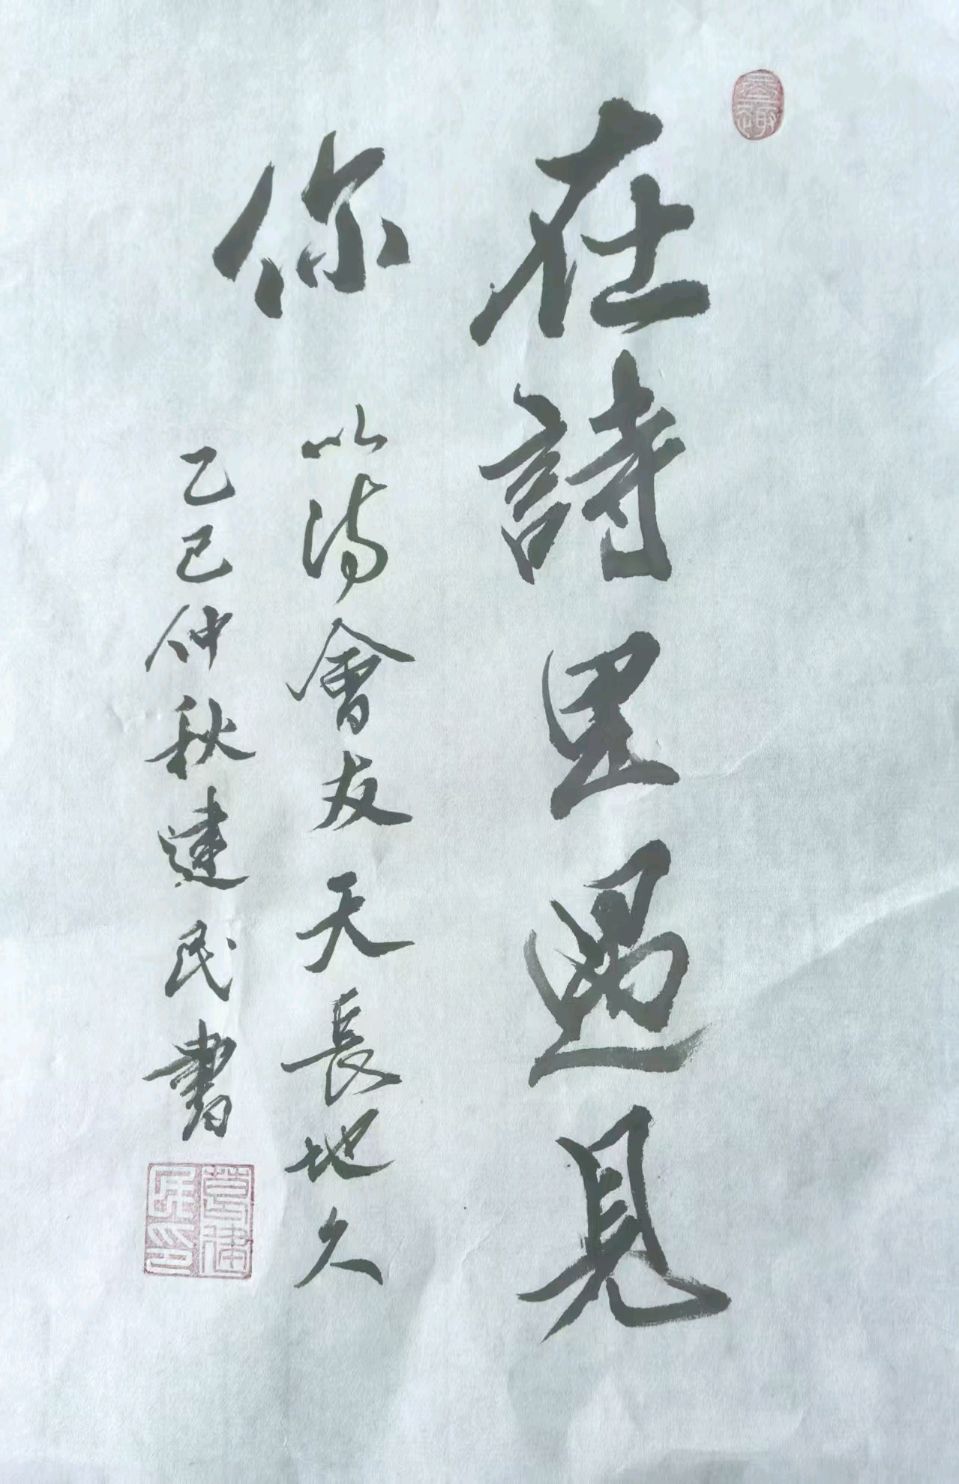 在詩里遇見
你
以詩會友天長地久
乙巳仲秋建民書